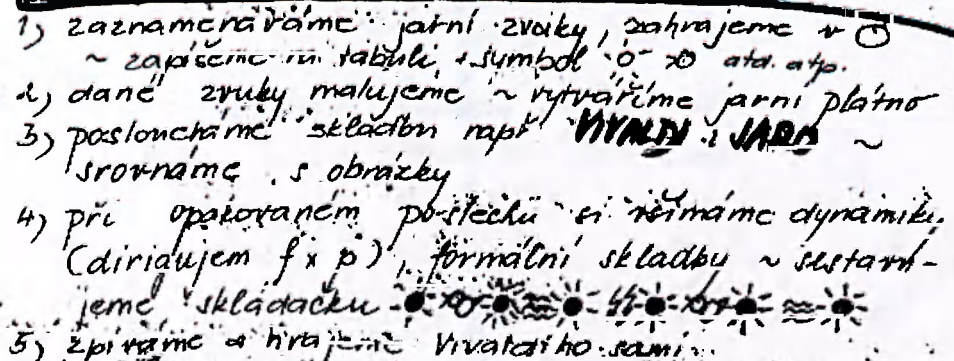 1) zaznamenáváme jarní zvuky, zahrajeme v
~ zapíšeme na tabuli, + symbol atd. atp.
2) dané zvuky malujeme ~ vytváříme jarní plátno
3) posloucháme skladbu např VIVALDI : JARO ~
srovnáme s obrázky
4) při opakovaném poslechu si všímáme dynamiku
(dirigujem f x p), formální skladbu ~ sestavu-
jeme skládačku
5) zpíváme a hrajeme Vivaldiho sami